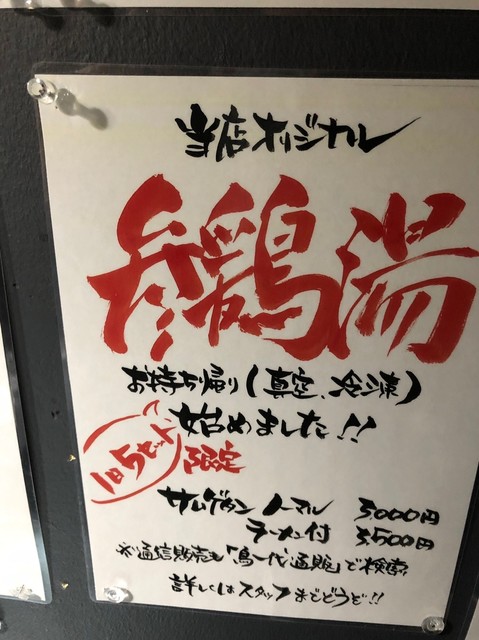 当店オリジナル
参鶏湯
お持ち帰り(真空、冷凍)
始めました!!
1日5セット
限定
サムゲタン ノーマル 3000円
ラーメン付 3500円
※通信販売も「鳥一代 通販」で検索!!
詳しくはスタッフまでどうぞ!!